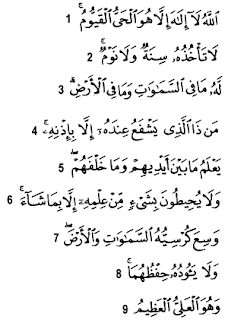 1 ٱللَّهُ لَآ إِلَٰهَ إِلَّا هُوَ ٱلْحَىُّ ٱلْقَيُّومُ ۚ
2 لَا تَأْخُذُهُۥ سِنَةٌ وَلَا نَوْمٌ ۚ
3 لَّهُۥ مَا فِى ٱلسَّمَٰوَٰتِ وَمَا فِى ٱلْأَرْضِ ۗ
4 مَن ذَا ٱلَّذِى يَشْفَعُ عِندَهُۥٓ إِلَّا بِإِذْنِهِۦ ۚ
5 يَعْلَمُ مَا بَيْنَ أَيْدِيهِمْ وَمَا خَلْفَهُمْ ۖ
6 وَلَا يُحِيطُونَ بِشَىْءٍ مِّنْ عِلْمِهِۦٓ إِلَّا بِمَا شَآءَ ۚ
7 وَسِعَ كُرْسِيُّهُ ٱلسَّمَٰوَٰتِ وَٱلْأَرْضَ ۖ
8 وَلَا يَـُٔودُهُۥ حِفْظُهُمَا ۚ
9 وَهُوَ ٱلْعَلِىُّ ٱلْعَظِيمُ